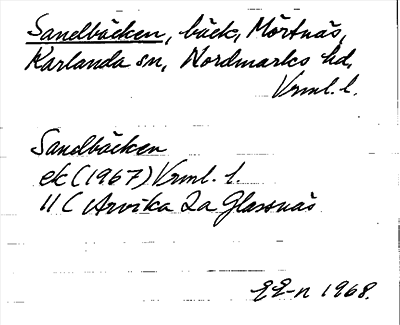 Sandbäcken, bäck, Mörtnäs,
Karlanda sn, Nordmarks hd,
Vrml. l.
Sandbäcken
ek (1967) Vrml. l.
11 C Arvika 2a Glassnäs
1968.